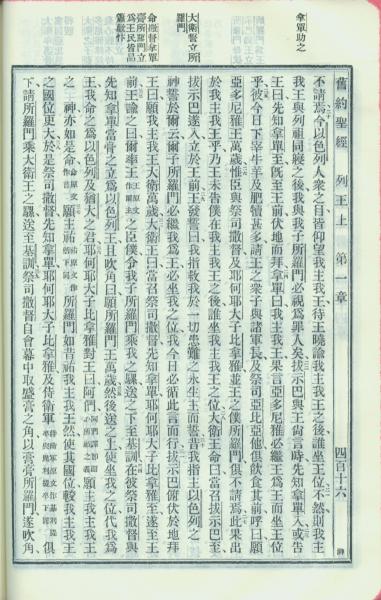 舊約聖經 列王上 第一章 四百十六
拿單助之
大衛誓立所羅門
命撒督拿單膏所羅門立為王民皆品簫歡忭
不請焉今以色列人衆之目皆仰望我主我王待王曉諭我主我王之後誰坐王位不然則我主
我王與列祖同寢之後我與我子所羅門必視為罪人矣拔示巴與王言時先知拿單入或告
王曰先知拿單至旣至王前伏地而拜拿單曰我主我王果言亞多尼雅必繼王為王而坐王位
乎彼今日下宰牛羊及肥犢甚多請王之衆子與諸軍長及祭司亞比亞他俱飲食其前呼曰願
亞多尼雅王萬歲惟臣與祭司撒督及耶何耶大子比拿雅並王之僕所羅門俱不請焉此果出
於我主我王乎乃王未告僕在我主我王之後誰坐我主我王之位大衛王命曰當召拔示巴至
拔示巴遂入立於王前王發誓曰我指救我於一切患難之永生主而誓昔我指主以色列之
神誓於爾云爾子所羅門必繼我為王必坐我之位我今日必循此言而行拔示巴俯伏於地拜
王曰願我主我王大衛萬歲大衛王曰當召祭司撒督先知拿單耶何耶大子比拿雅至遂至王
前王諭之曰爾率王之臣僕令我子所羅門乘我之騾送之下至基訓在彼祭司撒督與
先知拿單當膏之立為以色列王且吹角曰願所羅門王萬歲然後送之上使坐我之位代我為
王我命之為以色列及猶大之君耶何耶大子比拿雅對王曰阿們願主我主我王
之神亦如是命願主祐所羅門如昔祐我主我王然使其國位較我主我王
之國位更大於是祭司撒督先知拿單耶何耶大子比拿雅及侍衛軍俱
下請所羅門乘大衛王之騾送至基訓祭司撒督自會幕中取盛膏之角以膏膏所羅門遂吹角